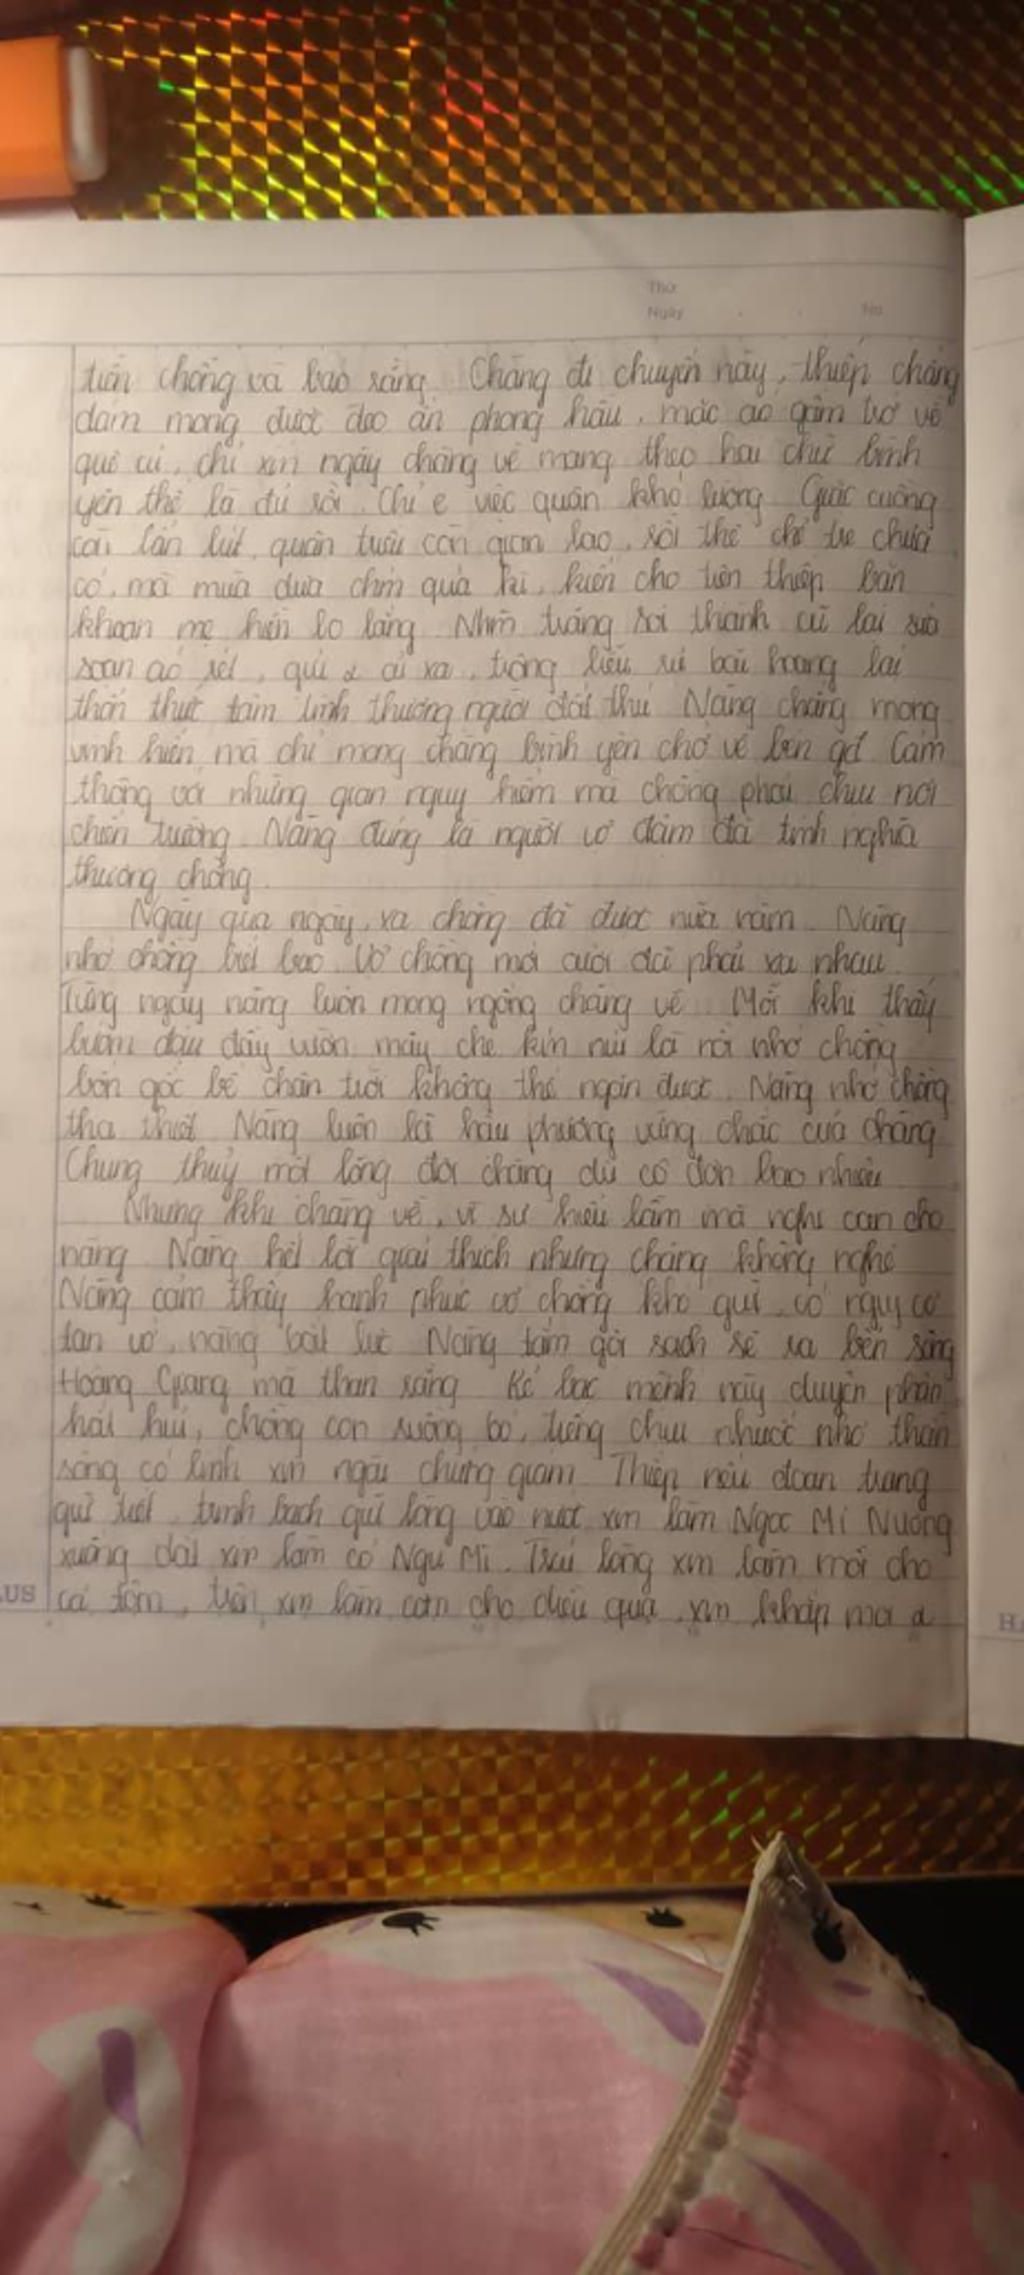 Thứ
Ngày No
tiễn chồng và bảo rằng. Chàng đi chuyến này, thiếp chẳng
dám mong được đeo ấn phong hầu, mặc áo gấm trở về
quê cũ, chỉ xin ngày chàng về mang theo hai chữ bình
yên thế là đủ rồi. Chỉ e việc quân khó lường. Giặc cuồng
còn lẩn lút, quân triều còn gian lao, rồi thế chẻ tre chưa
có, mà mùa dưa chín quá kì, khiến cho tiện thiếp băn
khoăn mẹ hiền lo lắng. Nhìn trăng soi thành cũ lại sửa
soạn áo rét, gửi ải xa, trông liễu rủ bãi hoang lại
thổn thức tâm tình thương người đất thú. Nàng chẳng mong
vinh hiển mà chỉ mong chàng bình yên chở về bên gđ. Cảm
thông với những gian nguy hiểm mà chồng phải chịu nơi
chiến trường. Nàng đúng là người vợ đằm đà tình nghĩa
thương chồng.
Ngày qua ngày, xa chồng đã được nửa năm. Nàng
nhớ chồng biết bao. Vợ chồng mới cưới đã phải xa nhau.
Từng ngày nàng luôn mong ngóng chàng về. Mỗi khi thấy
bướm đậu đầy vườn mây che kín núi là nỗi nhớ chồng
bốn góc bể chân trời không thể ngăn được. Nàng nhớ chồng
tha thiết. Nàng luôn là hậu phương vững chắc của chàng
Chung thuỷ một lòng đợi chàng dù cô đơn bao nhiêu
Nhưng khi chàng về, vì sự hiểu lầm mà nghi oan cho
nàng. Nàng hết lời giải thích nhưng chàng không nghe
Nàng cảm thấy hạnh phúc vợ chồng khó giữ, có nguy cơ
tan vỡ, nàng bất lực. Nàng tắm gội sạch sẽ ra bến sông
Hoàng Giang mà than rằng. Kẻ bạc mệnh này duyên phận
hẩt hiu, chồng con ruồng bỏ, tiếng chịu nhuốc nhơ thần
sông có linh xin ngài chứng giám. Thiếp nếu đoan trang
giữ tiết, trinh bạch giữ lòng vào nước xin làm Ngọc Mị Nương
xuống đất xin làm cỏ Ngu Mĩ. Trái lòng xin làm mồi cho
cá tôm, trên xin làm cơm cho diều quạ, xin khắp mọi